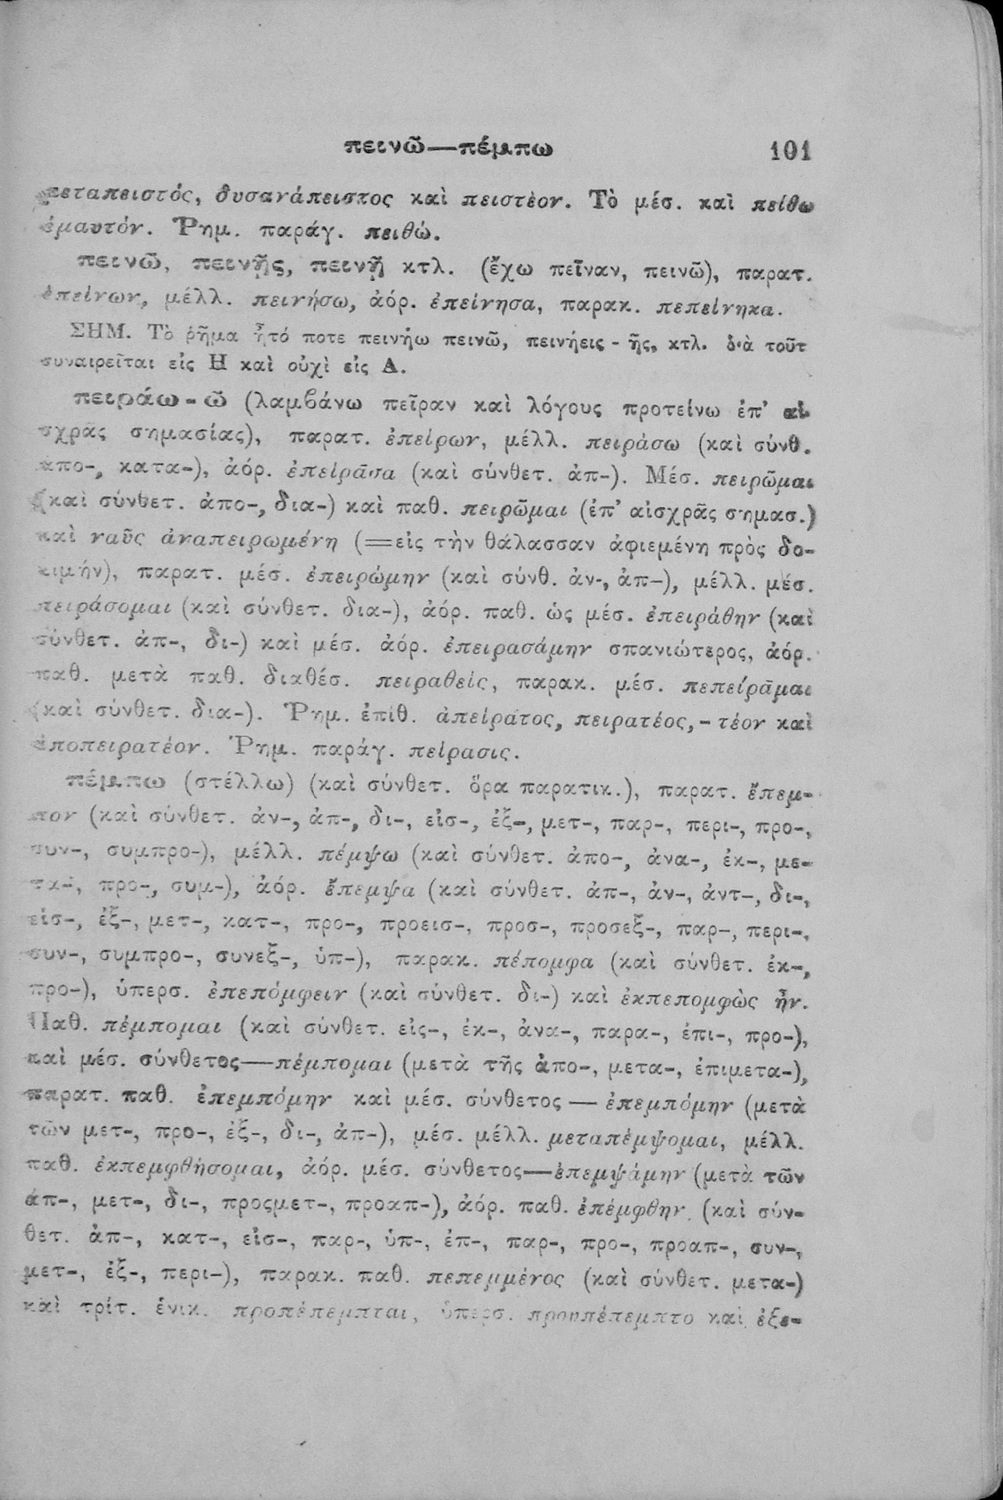 πεινῶ—πέμπω 101
μεταπειστός, δυσανάπειστος καὶ πειστέον. Τὸ μέσ. καὶ πείθω
ἐμαυτόν. Ῥημ. παράγ. πειθώ.
πεινῶ, πεινῇς, πεινῇ κτλ. (ἔχω πεῖναν, πεινῶ), παρατ.
ἐπείνων, μέλλ. πεινήσω, ἀόρ. ἐπείνησα, παρακ. πεπείνηκα.
ΣΗΜ. Τὸ ῥῆμα ἦτό ποτε πεινήω πεινῶ, πεινήεις - ῇς, κτλ. δ·ὰ τοῦτ
συναιρεῖται εἰς Η καὶ οὐχὶ εἰς Α.
πειράω - ῶ (λαμβάνω πεῖραν καὶ λόγους προτείνω ἐπ' αἰ
σχρᾶς σημασίας), παρατ. ἐπείρων, μέλλ. πειράσω (καὶ σύνθ.
ἀπο-, κατα-), ἀόρ. ἐπείρᾱσα (καὶ σύνθετ. ἀπ-). Μέσ. πειρῶμαι
(καὶ σύνθετ. ἀπο-, δια-) καὶ παθ. πειρῶμαι (ἐπ' αἰσχρᾶς σημασ.)
καὶ ναῦς ἀναπειρωμένη (=εἰς τὴν θάλασσαν ἀφιεμένη πρὸς δο-
κιμήν), παρατ. μέσ. ἐπειρώμην (καὶ σύνθ. ἀν-, ἀπ-), μέλλ. μέσ.
πειράσομαι (καὶ σύνθετ. δια-), ἀόρ. παθ. ὡς μέσ. ἐπειράθην (καὶ
σύνθετ. ἀπ-, δι-) καὶ μέσ. ἀόρ. ἐπειρασάμην σπανιώτερος, ἀόρ.
παθ. μετὰ παθ. διαθέσ. πειραθείς, παρακ. μέσ. πεπείρᾱμαι
(καὶ σύνθετ. δια-). Ῥημ. ἐπίθ. ἀπείρατος, πειρατέος, - τέον καὶ
ἀποπειρατέον. Ῥημ. παράγ. πείρασις.
πέμπω (στέλλω) (καὶ σύνθετ. ὅρα παρατικ.), παρατ. ἔπεμ-
πον (καὶ σύνθετ. ἀν-, ἀπ-, δι-, εἰσ-, ἐξ-, μετ-, παρ-, περι-, προ-,
συν-, συμπρο-), μέλλ. πέμψω (καὶ σύνθετ. ἀπο-, ἀνα-, ἐκ-, με-
τα-, προ-, συμ-), ἀόρ. ἔπεμψα (καὶ σύνθετ. ἀπ-, ἀν-, ἀντ-, δι-,
εἰσ-, ἐξ-, μετ-, κατ-, προ-, προεισ-, προσ-, προσεξ-, παρ-, περι-,
συν-, συμπρο-, συνεξ-, ὑπ-), παρακ. πέπομφα (καὶ σύνθετ. ἐκ-,
προ-), ὑπερσ. ἐπεπόμφειν (καὶ σύνθετ. δι-) καὶ ἐκπεπομφὼς ἦν.
Παθ. πέμπομαι (καὶ σύνθετ. εἰς-, ἐκ-, ἀνα-, παρα-, ἐπι-, προ-),
καὶ μέσ. σύνθετος—πέμπομαι (μετὰ τῆς ἀπο-, μετα-, ἐπιμετα-),
παρατ. παθ. ἐπεμπόμην καὶ μέσ. σύνθετος — ἐπεμπόμην (μετὰ
τῶν μετ-, προ-, ἐξ-, δι-, ἀπ-), μέσ. μέλλ. μεταπέμψομαι, μέλλ.
παθ. ἐκπεμφθήσομαι, ἀόρ. μέσ. σύνθετος—ἐπεμψάμην (μετὰ τῶν
ἀπ-, μετ-, δι-, προςμετ-, προαπ-), ἀόρ. παθ. ἐπέμφθην (καὶ σύν-
θετ. ἀπ-, κατ-, εἰσ-, παρ-, ὑπ-, ἐπ-, παρ-, προ-, προαπ-, συν-,
μετ-, ἐξ-, περι-), παρακ. παθ. πεπεμμένος (καὶ σύνθετ. μετα-)
καὶ τρίτ. ἑνικ. προπέπεμπται, ὑπερσ. προυπέπεμπτο καὶ ἐξε-